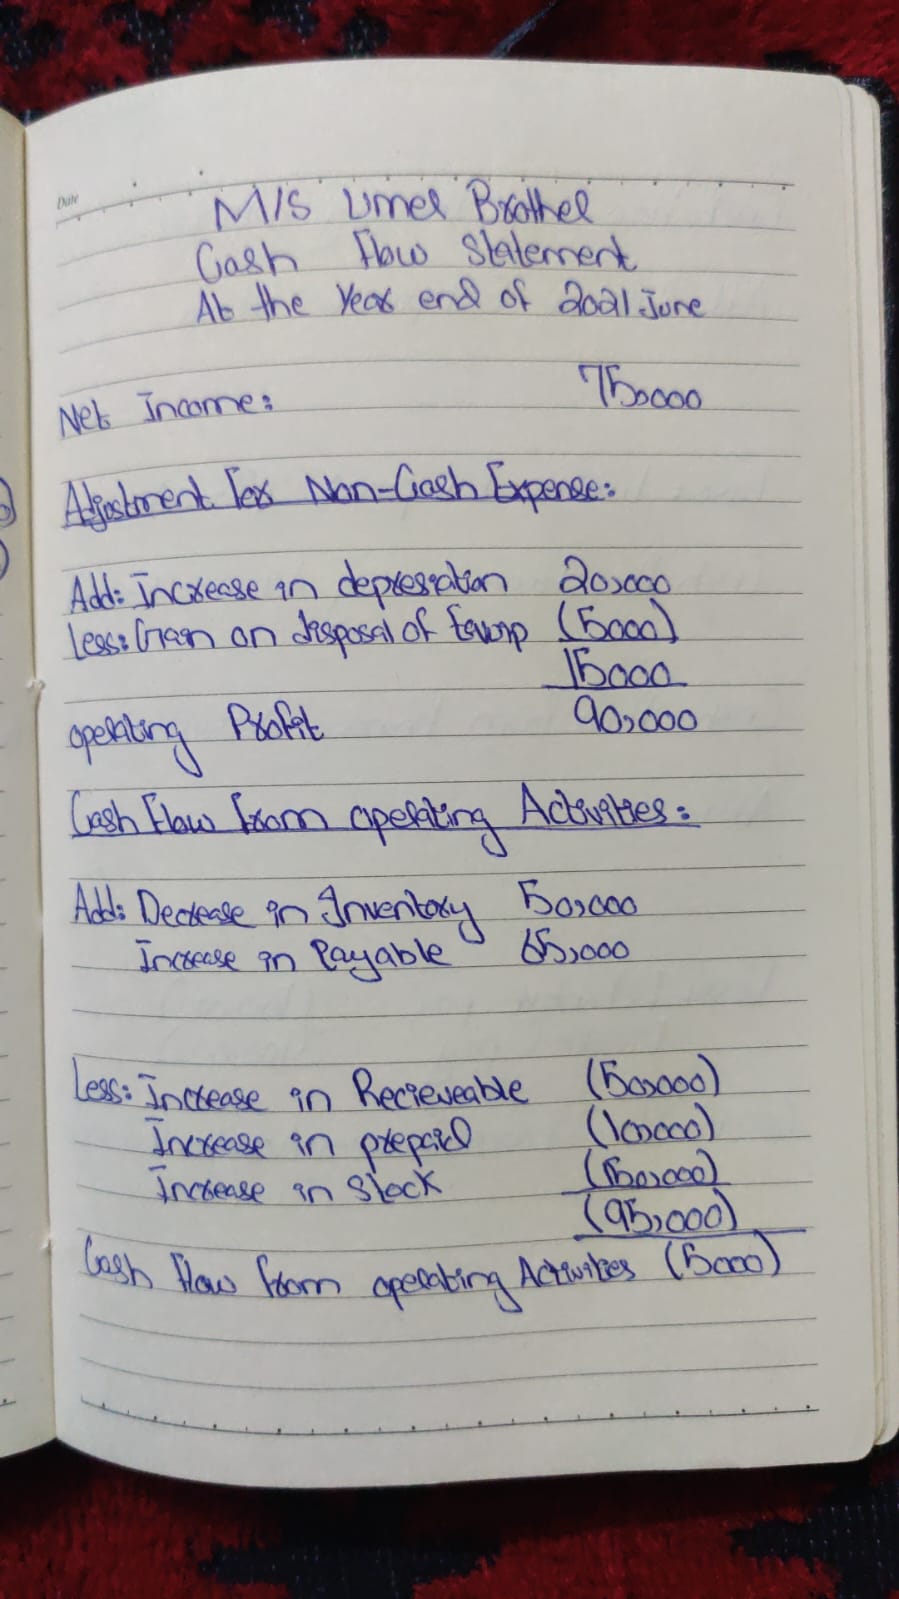 Date
M/S Umer Brother
Cash Flow Statement
At the Year end of 2021 June
Net Income: 75,000
Adjustment For Non-Cash Expense:
Add: Increase in depresiation 20,000
Less: Gain on disposal of (5000)
15000
Operating Profit 90,000
Cash Flow From operating Activities:
Add: Decrease in Inventory 50,000
Increase in Payable
Less: Increase in Recieveable (50,000)
Increase in prepaid
Increase in Stock
(95,000)
Cash Flow from operating Activities (5000)